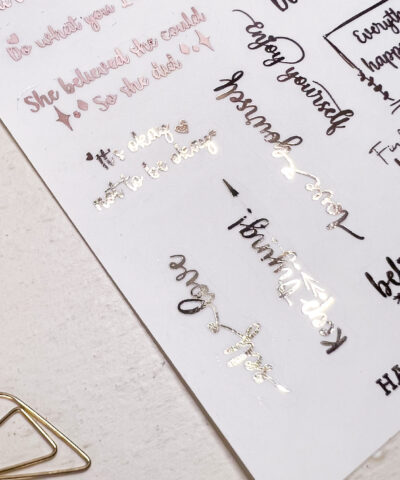 Do what you
She believed she could
So she did
It's okay
not to be okay
enjoy yourself
love yourself
keep trying!
self love
Everything
happens